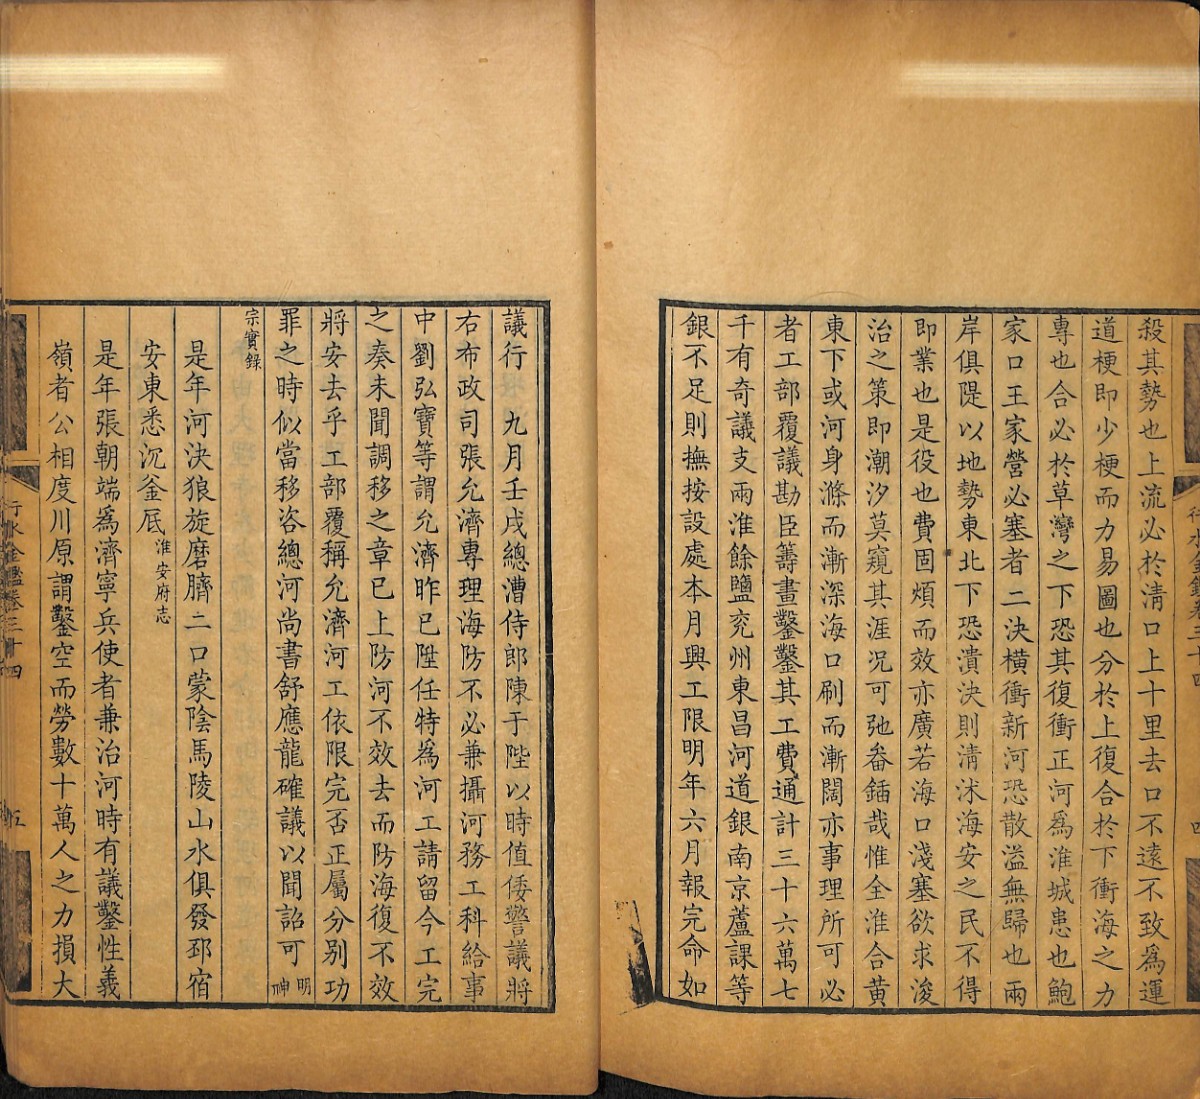 殺其勢也上流必於淸口上十里去口不遠不致爲運
道梗即少梗而力易圖也分於上復合於下衝海之力
專也合必於草灣之下恐其復衝正河爲淮城患也鮑
家口王家營必塞者二決橫衝新河恐散溢無歸也兩
岸俱隄以地勢東北下恐潰決則淸沭海安之民不得
即業也是役也費固煩而效亦廣若海口淺塞欲求浚
治之策即潮汐莫窺其涯況可弛畚鍤哉惟全淮合黃
東下或河身滌而漸深海口刷而漸闊亦事理所可必
者工部覆議勘臣籌畫鑿鑿其工費通計三十六萬七
千有奇議支兩淮餘鹽兖州東昌河道銀南京蘆課等
銀不足則撫按設處本月興工限明年六月報完命如
議行 九月壬戌總漕侍郎陳于陛以時值倭警議將
右布政司張允濟專理海防不必兼攝河務工科給事
中劉弘寶等謂允濟昨已陞任特爲河工請留今工完
之奏未聞調移之章已上防河不效去而防海復不效
將安去乎工部覆稱允濟河工依限完否正屬分別功
罪之時似當移咨總河尚書舒應龍確議以聞詔可 明神
宗實錄
是年河決狼旋磨臍二口蒙陰馬陵山水俱發邳宿
安東悉沉釜底 淮安府志
是年張朝端爲濟寧兵使者兼治河時有議鑿性義
嶺者公相度川原謂鑿空而勞數十萬人之力損大
行水金鑑卷三十四